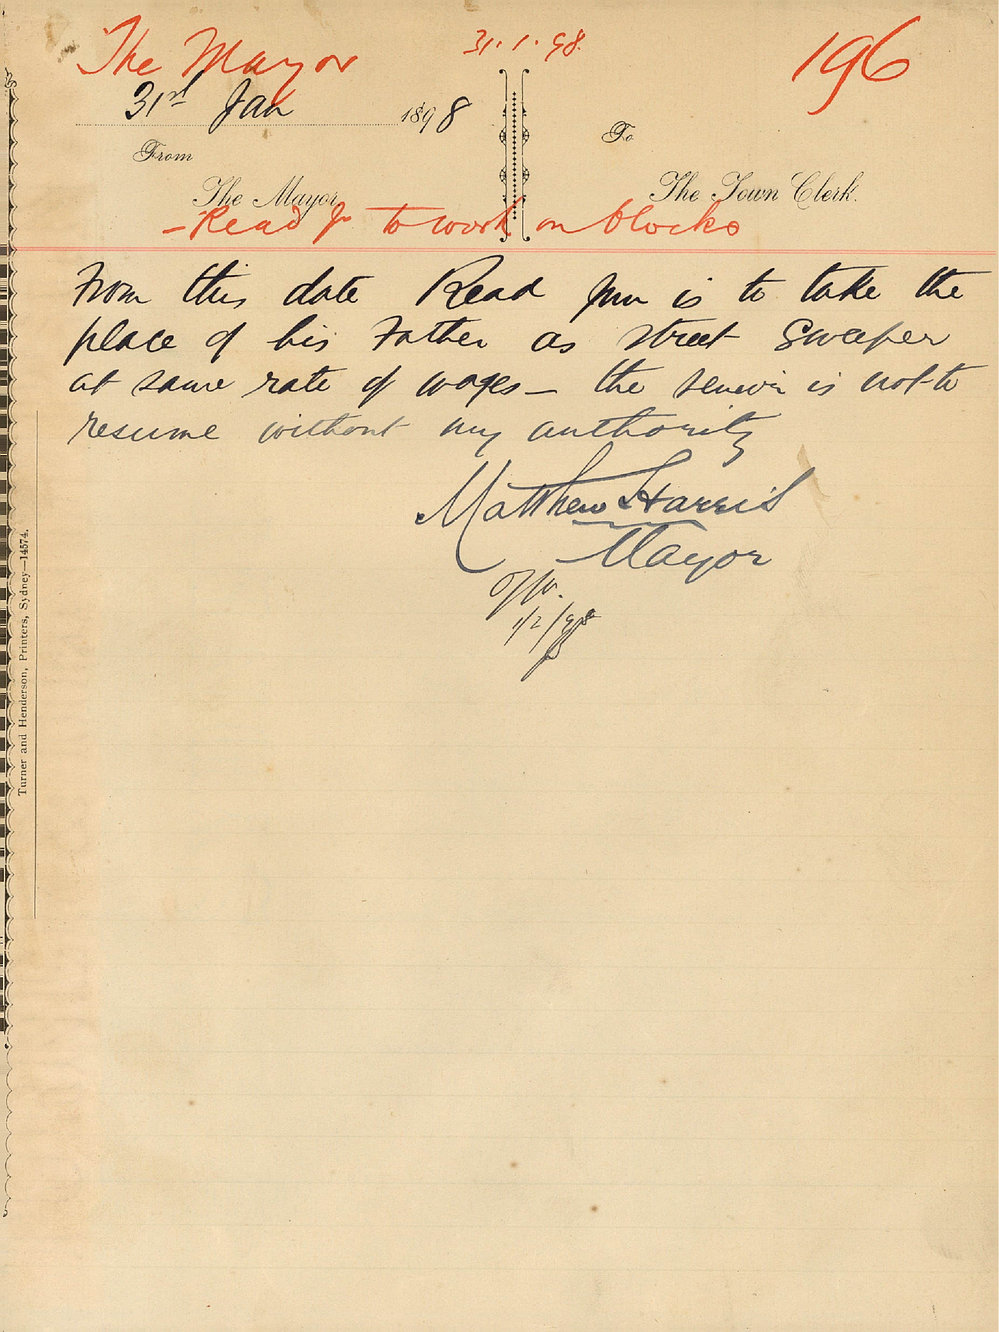 The Mayor
31.1.98.
196
31st Jan 1898
From
The Mayor
To
The Town Clerk.
- Read Jr to work on blocks
From this date Read Junr is to take the
place of his Father as street Sweeper
at same rate of wages — the senior is not to
resume without my authority
Matthew Harris
Mayor
1/2/98
Turner and Henderson, Printers, Sydney—14574.